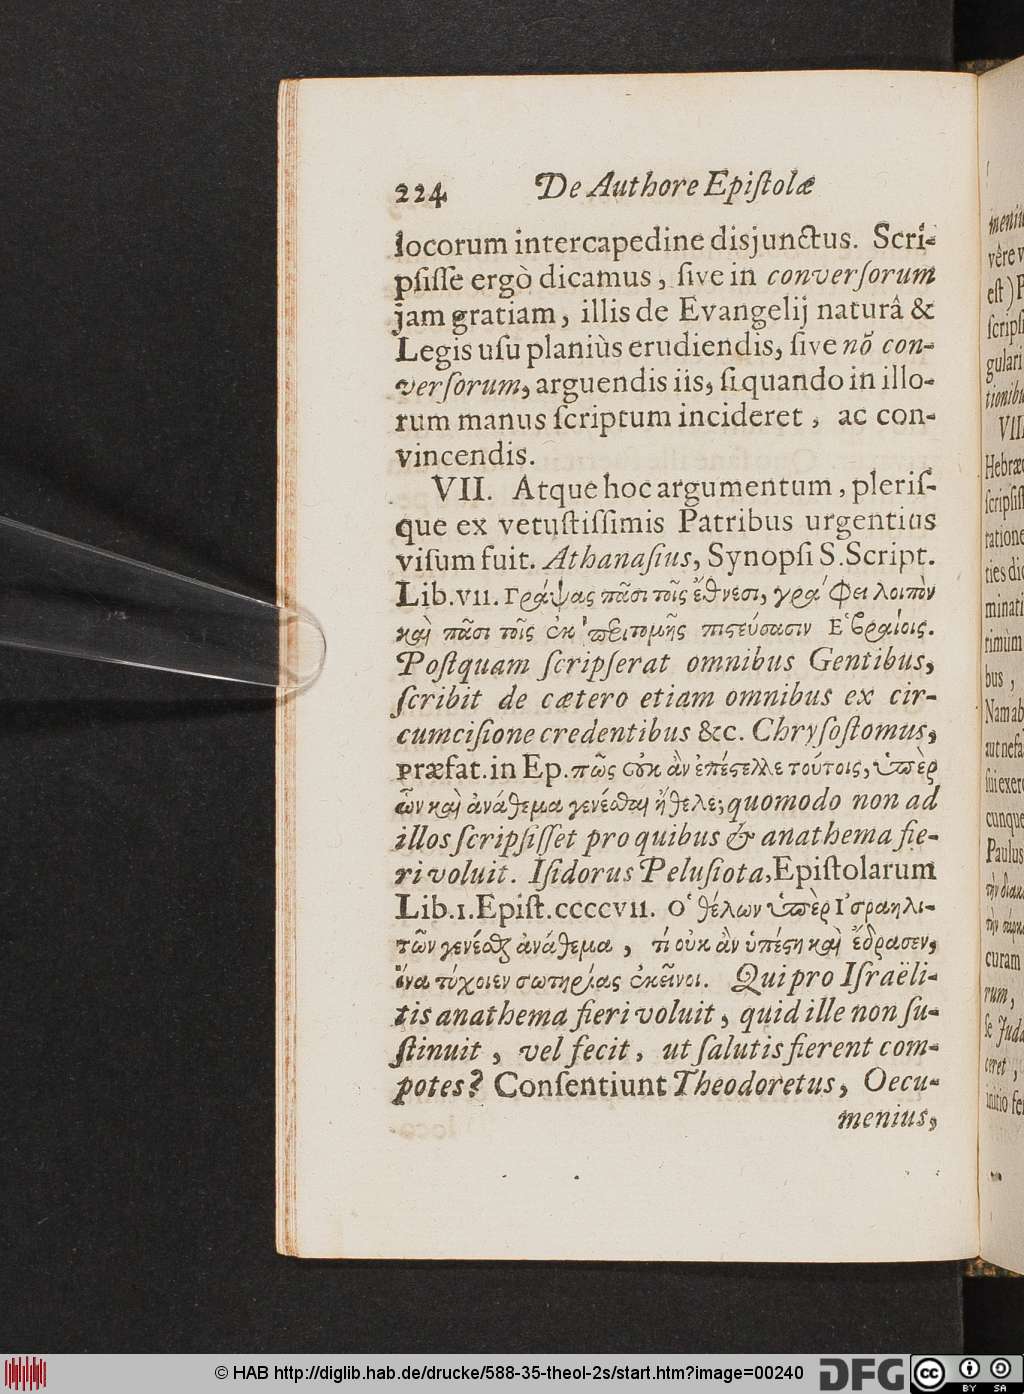 224 De Authore Epiſtolæ
locorum intercapedine disjunctus. Scri-
pſiſſe ergò dicamus, ſive in converſorum
jam gratiam, illis de Evangelij naturâ &
Legis uſu planiùs erudiendis, ſive nõ con-
verſorum, arguendis iis, ſi quando in illo-
rum manus ſcriptum incideret, ac con-
vincendis.
VII. Atque hoc argumentum, pleriſ-
que ex vetuſtiſſimis Patribus urgentius
viſum fuit. Athanaſius, Synopſi S. Script.
Lib. VII. Γράψας πᾶσι τοῖς ἔθνεσι, γράφει λοιπὸν
καὶ πᾶσι τοῖς ἐκ περιτομῆς πιστεύσασιν Ἑβραίοις.
Poſtquam ſcripſerat omnibus Gentibus,
ſcribit de cætero etiam omnibus ex cir-
cumciſione credentibus &c. Chryſoſtomus,
præfat. in Ep. πῶς οὐκ ἂν ἐπέστελλε τούτοις, ὑπὲρ
ὧν καὶ ἀνάθεμα γενέσθαι ἤθελε; quomodo non ad
illos ſcripſiſſet pro quibus & anathema fie-
ri voluit. Iſidorus Peluſiota, Epiſtolarum
Lib. I. Epiſt. CCCCVII. Ὁ θέλων ὑπὲρ Ἰσραηλι-
τῶν γενέσθαι ἀνάθεμα, τί οὐκ ἂν ὑπέστη καὶ ἔδρασεν,
ἵνα τύχοιεν σωτηρίας ἐκεῖνοι. Qui pro Iſraëli-
tis anathema fieri voluit, quid ille non ſu-
ſtinuit, vel fecit, ut ſalutis fierent com-
potes? Conſentiunt Theodoretus, Oecu-
menius,
vêre v
eſt) P
gulari
VIII
Hebræo
ratione
ties dic
minati
rimùm
bus,
Nam ab
cunque
Paulus
curam
rum,
ſe Juda
ceret,
© HAB http://diglib.hab.de/drucke/588-35-theol-2s/start.htm?image=00240
DFG
cc BY SA